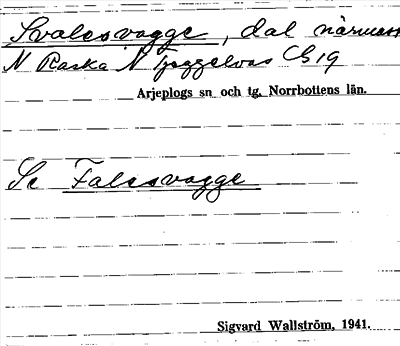 Svalesvagge, dal närmast
N Raska N Tjeggelvas C19
Arjeplogs sn och tg, Norrbottens län.
Se Falesvagge
Sigvard Wallström, 1941.